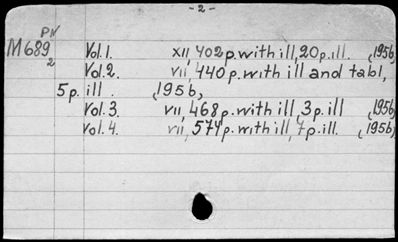 - 2 -
PN
M689
2
Vol.1. XII, 402 p. with ill, 20 p. ill. (1956,
Vol.2. VII, 440 p. with ill and tabl,
5 p. ill. (1956,
Vol.3. VII, 468 p. with ill, 3 p. ill (1956)
Vol.4. VII, 574 p. with ill, 7 p. ill. (1956)